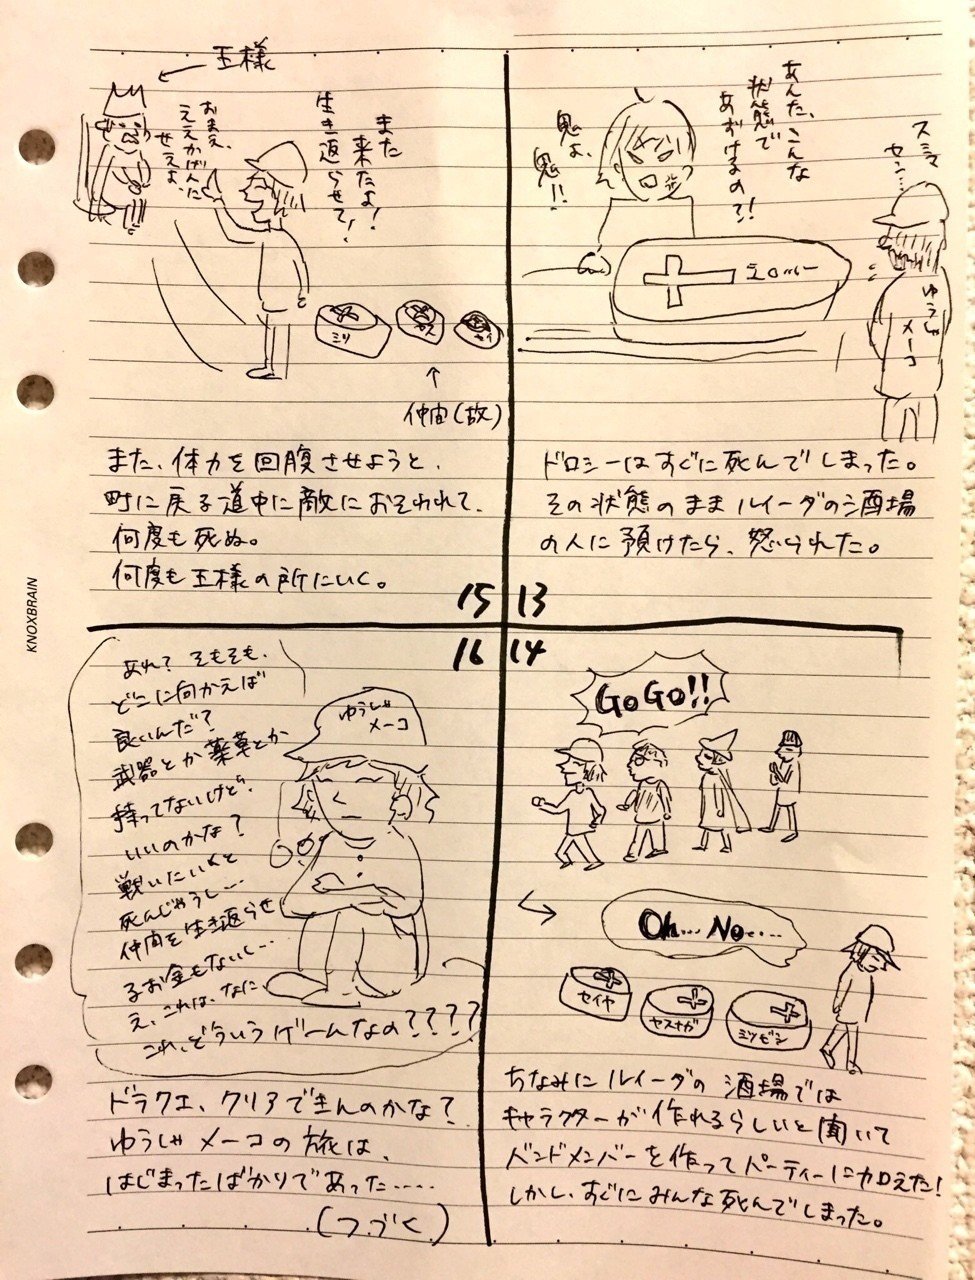 あんた、こんな
状態で
あずけるの?!
鬼よ、
鬼!!
スミマ
セン…
ゆうしゃ
メーコ
ドロシーはすぐに死んでしまった。
その状態のままルイーダの酒場
の人に預けたら、怒られた。
13
14
GoGo!!
Oh... No....
セイヤ
ヤスナガ
ミツゼン
ちなみにルイーダの酒場では
キャラクターが作れるらしいと聞いて
バンドメンバーを作ってパーティーに加えた!
しかし、すぐにみんな死んでしまった。
王様
また
来たよ!
生き返らせて!
おまえ、
ええかげんに
せえよ、
ミツ
ヤス
セイ
↑
仲間(故)
また、体力を回腹させようと、
町に戻る道中に敵におそわれて、
何度も死ぬ。
何度も王様の所にいく。
15
16
あれ? そもそも、
どこに向かえば
良いんだ?
武器とか薬草とか
持ってないけど、
いいのかな?
戦いたいけど
死んじゃうし…
仲間を生き返らせ
るお金もないし…
え、これは、なに、
これ、どういうゲームなの????
ゆうしゃ
メーコ
ドラクエ、クリアできんのかな?
ゆうしゃメーコの旅は、
はじまったばかりであった……
(つづく)
KNOXBRAIN